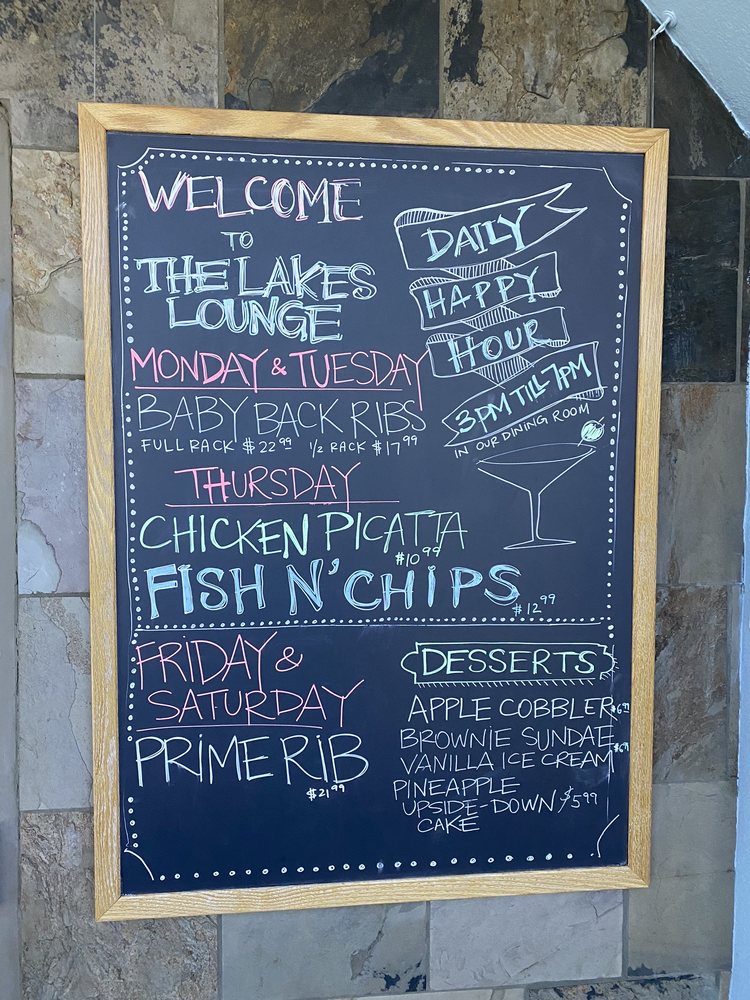 WELCOME
TO
THE LAKES
LOUNGE
DAILY
HAPPY
HOUR
3PM TILL 7PM
IN OUR DINING ROOM
MONDAY & TUESDAY
BABY BACK RIBS
FULL RACK $22.99 1/2 RACK $17.99
THURSDAY
CHICKEN PICATTA
$10.99
FISH N' CHIPS
$12.99
FRIDAY &
SATURDAY
PRIME RIB
$21.99
DESSERTS
APPLE COBBLER
BROWNIE SUNDAE
VANILLA ICE CREAM
PINEAPPLE
UPSIDE-DOWN $5.99
CAKE